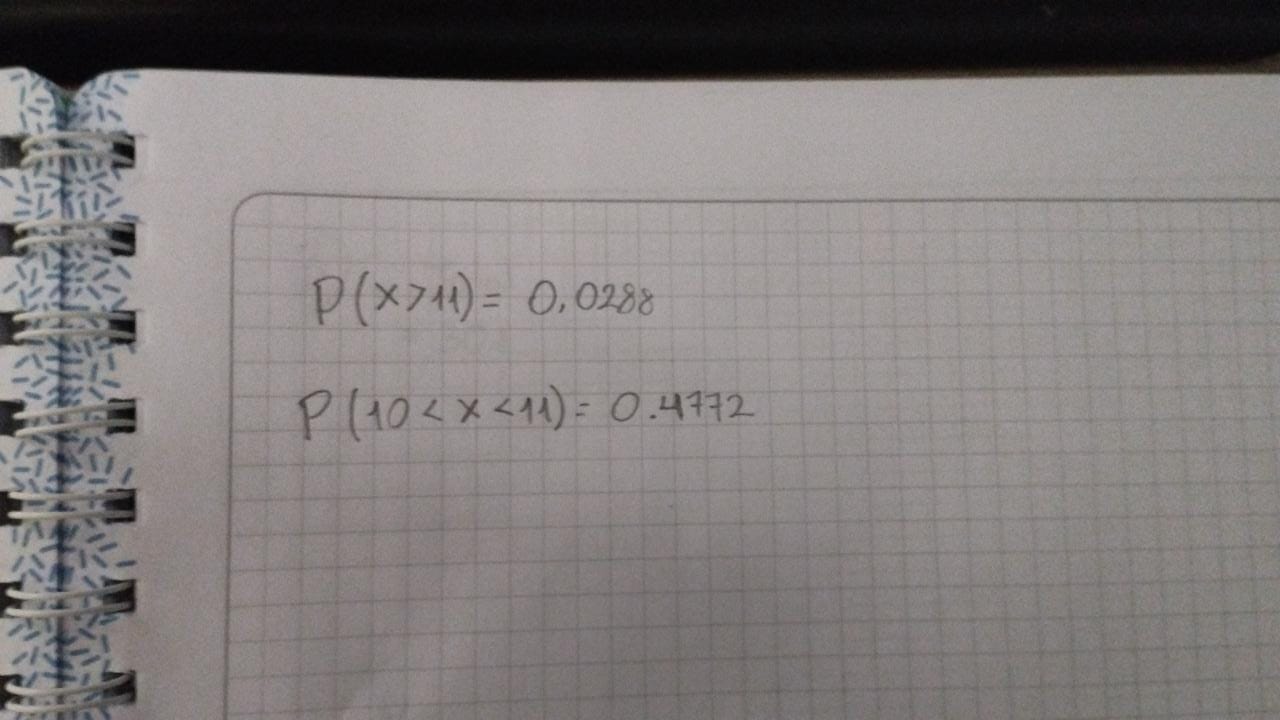 P(x>11)= 0.0288
P(10<x<11)= 0.4772